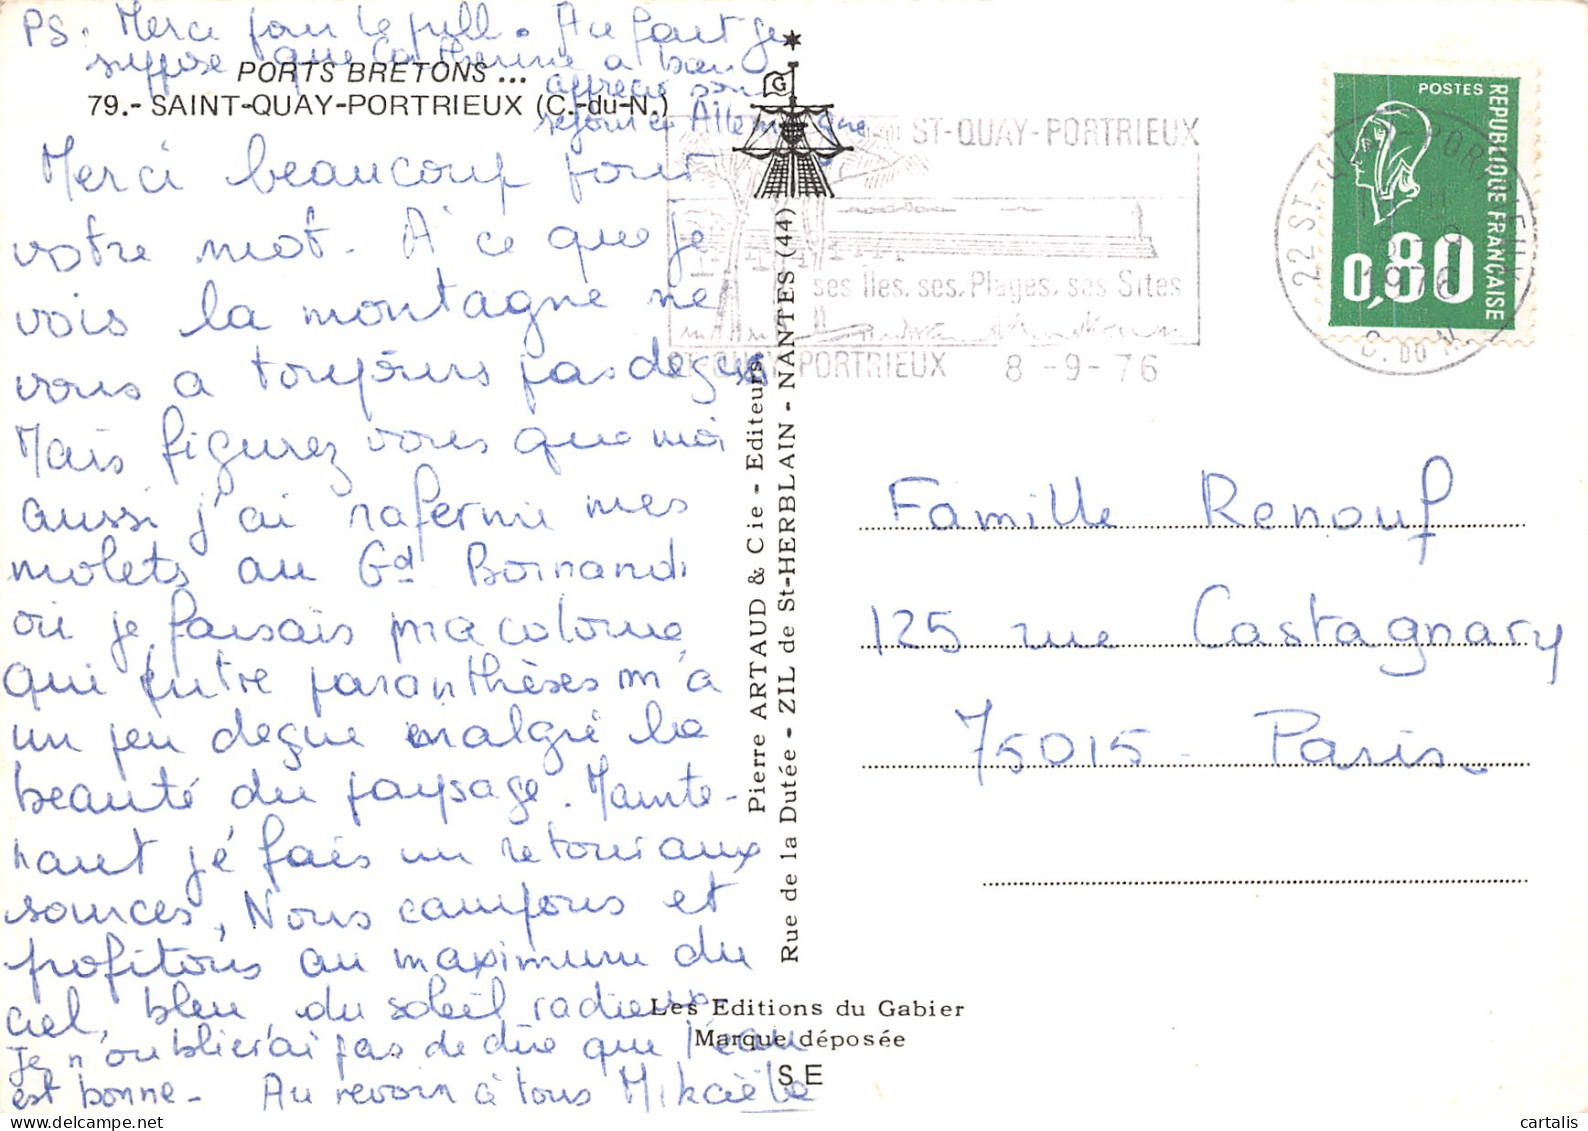 PS. Merci pour le pull. Au fait je
suppose que Catherine a bien
apprécié son
séjour en Allemagne
PORTS BRETONS ...
79.- SAINT-QUAY-PORTRIEUX (C.-du-N.)
Merci beaucoup pour
votre mot. A ce que je
vois la montagne ne
vous a toujours pas deçus
Mais figurez vous que moi
aussi j'ai rafermi mes
molets au Gd Bornand
où je faisais ma colonie
qui entre paranthèses m'a
un peu deçue malgré la
beauté du paysage. Mainte-
nant je fais un retour aux
sources, Nous campons et
profitons au maximum du
ciel, bleu du soleil radieux
Je n'oublierai pas de dire que l'eau
est bonne - Au revoir à tous Mikaële
G
Pierre ARTAUD & Cie - Editeurs
Rue de la Dutée - ZIL de St-HERBLAIN - NANTES (44)
Les Editions du Gabier
Marque déposée
SE
ST-QUAY-PORTRIEUX
ses Iles, ses Plages, ses Sites
ST-QUAY PORTRIEUX 8 -9- 76
22 ST-QUAY-PORTRIEUX
1976
C. DU N.
POSTES
REPUBLIQUE FRANÇAISE
0,80
Famille Renouf
125 rue Castagnary
75015 - Paris
cartalis